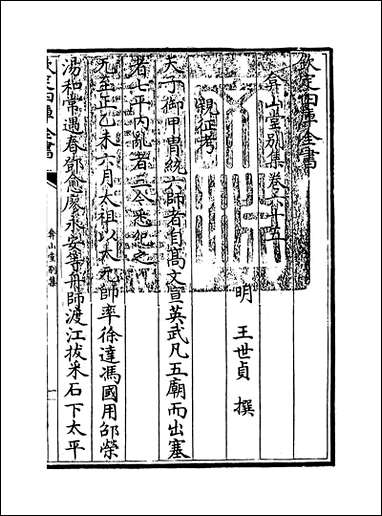 欽定四庫全書
弇山堂別集卷六十五
明 王世貞 撰
親征考
天子御甲胄統六師者自高文宣英武凡五廟而出塞
者七平内亂者三今悉紀之
元至正乙未六月太祖以大元帥率徐達馮國用邵榮
湯和常遇春鄧愈廖永安等舟師渡江拔采石下太平
欽定四庫全書
弇山堂別集
一